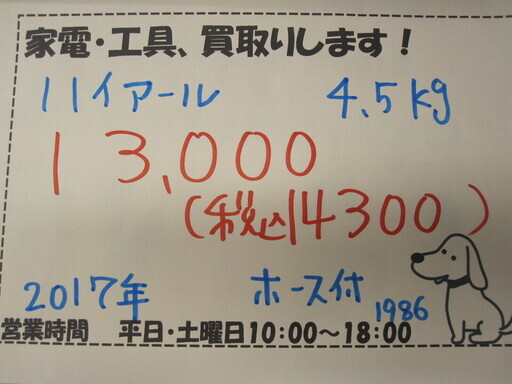 家電・工具、買取りします！
ハイアール 4.5kg
13,000
(税込14300)
2017年 ホース付 1986
営業時間 平日・土曜日10:00～18:00